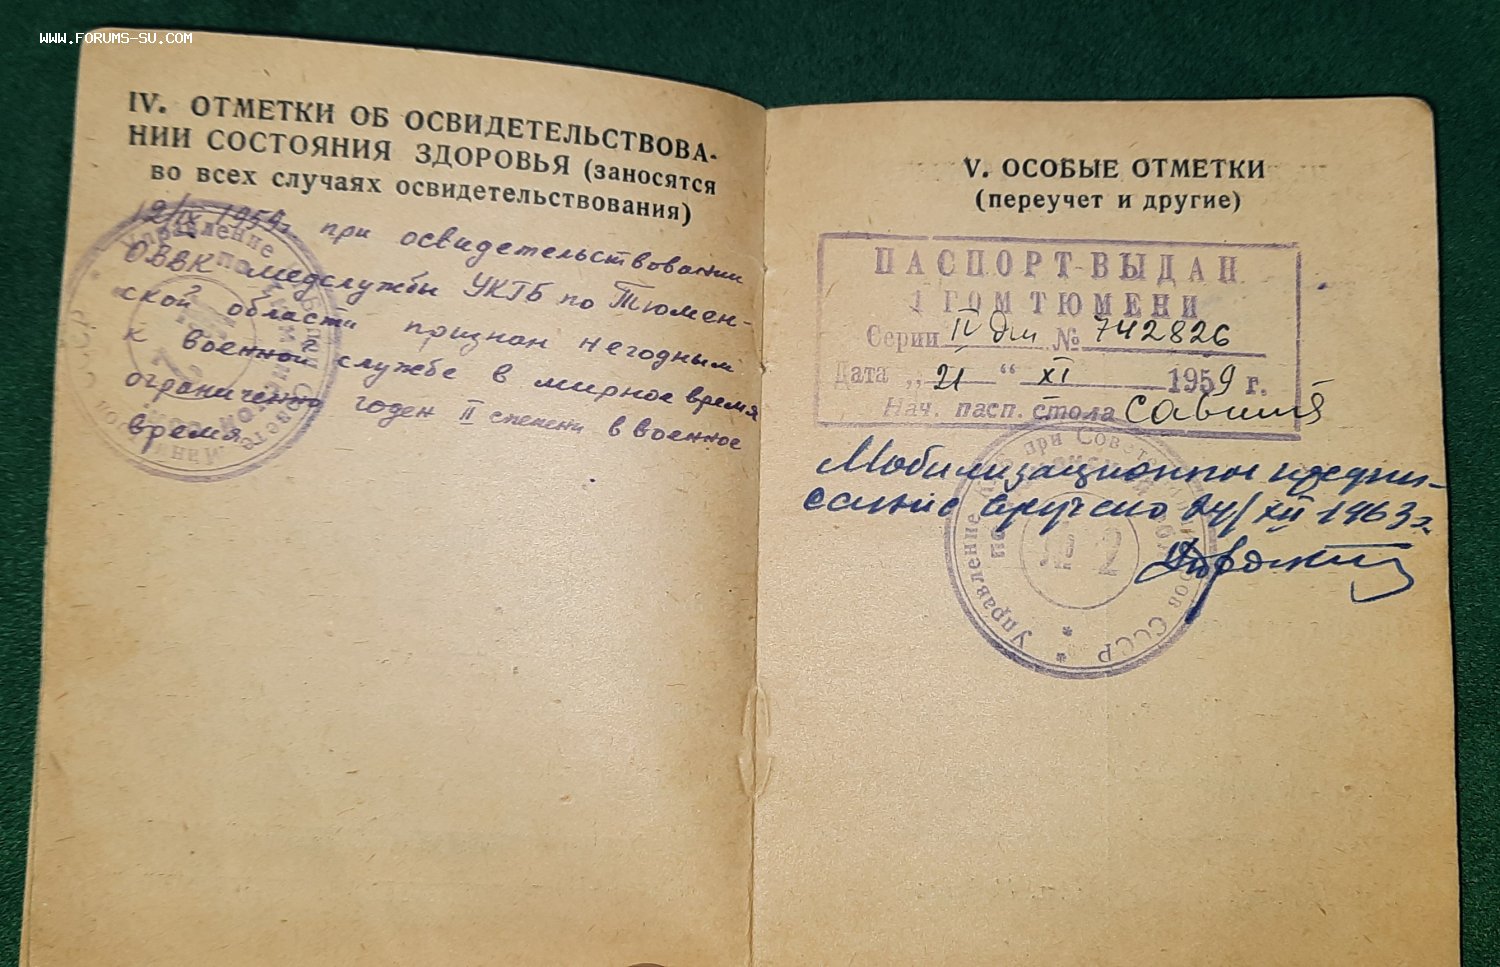 WWW.FORUMS-SU.COM
IV. ОТМЕТКИ ОБ ОСВИДЕТЕЛЬСТВОВА-
НИИ СОСТОЯНИЯ ЗДОРОВЬЯ (заносятся
во всех случаях освидетельствования)
12/IX 1959г. при освидетельствовании
ОВВК медслужбы УКГБ по Тюмен-
ской области признан негодным
к военной службе в мирное время
ограниченно годен II степени в военное
время
V. ОСОБЫЕ ОТМЕТКИ
(переучет и другие)
ПАСПОРТ ВЫДАН
1 ГОМ ТЮМЕНИ
Серии IV № 742826
Дата „21“ XI 1959 г.
Нач. пасп. стола
Мобилизационное предпи-
сание вручено 24/XII 1963 г.
Управление при Совете СССР